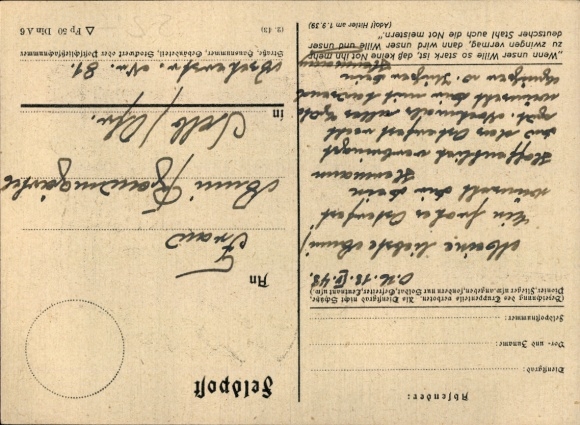 Absender:
Dienstgrad
Vor- und Zuname:
Feldpostnummer:
(Bezeichnung des Truppenteils verboten. Als Dienstgrad nicht Schütze,
Pionier, Flieger usw. angeben, sondern nur Soldat, Gefreiter, Leutnant usw.)
O.U. 18. IV. 43.
Meine liebste Anni!
Ein frohes Osterfest
wünscht dir dein
Hermann
Hoffentlich verbringst
du das Osterfest recht
gut. Nochmals alles Gute
wünscht dir mit tausend
Grüßen u. Küssen dein
Hermann
„Wenn unser Wille so stark ist, daß keine Not ihn mehr
zu zwingen vermag, dann wird unser Wille und unser
deutscher Stahl auch die Not meistern.“
(Adolf Hitler am 1.9.39)
Feldpost
An
Frau
Anni
in
Selb/Ofr.
Nr. 81.
Straße, Hausnummer, Gebäudeteil, Stockwerk oder Postschließfachnummer
(2. 43) △ Fp 50 Din A 6